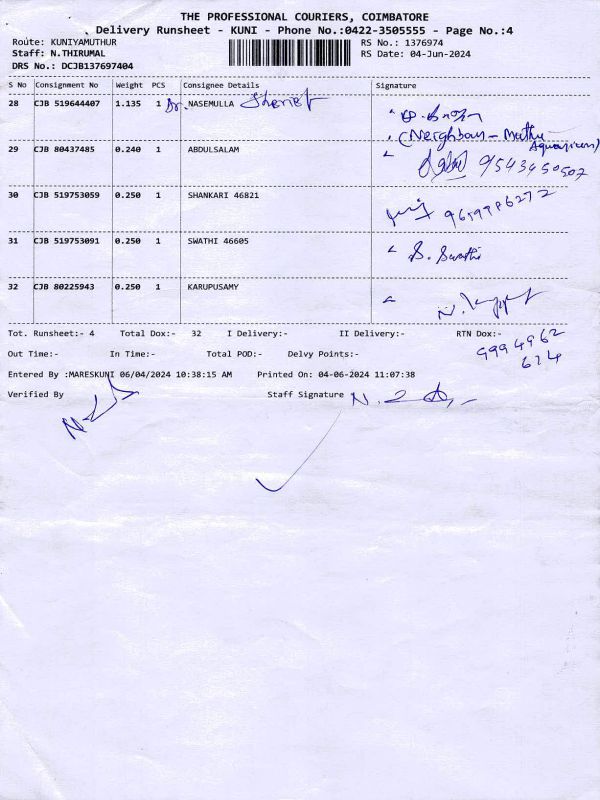 THE PROFESSIONAL COURIERS, COIMBATORE
Delivery Runsheet - KUNI - Phone No.:0422-3505555 - Page No.:4
Route: KUNIYAMUTHUR RS No.: 1376974
Staff: N.THIRUMAL RS Date: 04-Jun-2024
DRS No.: DCJB137697404
S No Consignment No Weight PCS Consignee Details Signature
28 CJB 519644407 1.135 1 Dr. NASEMULLA Sherief
(Neighbour - Muthu Aquarium)
29 CJB 80437485 0.240 1 ABDULSALAM 9543450507
30 CJB 519753059 0.250 1 SHANKARI 46821 9659986272
31 CJB 519753091 0.250 1 SWATHI 46605 S. Swathi
32 CJB 80225943 0.250 1 KARUPUSAMY
Tot. Runsheet:- 4 Total Dox:- 32 I Delivery:- II Delivery:- RTN Dox:-
9994962
614
Out Time:- In Time:- Total POD:- Delvy Points:-
Entered By :MARESKUNI 06/04/2024 10:38:15 AM Printed On: 04-06-2024 11:07:38
Verified By Staff Signature